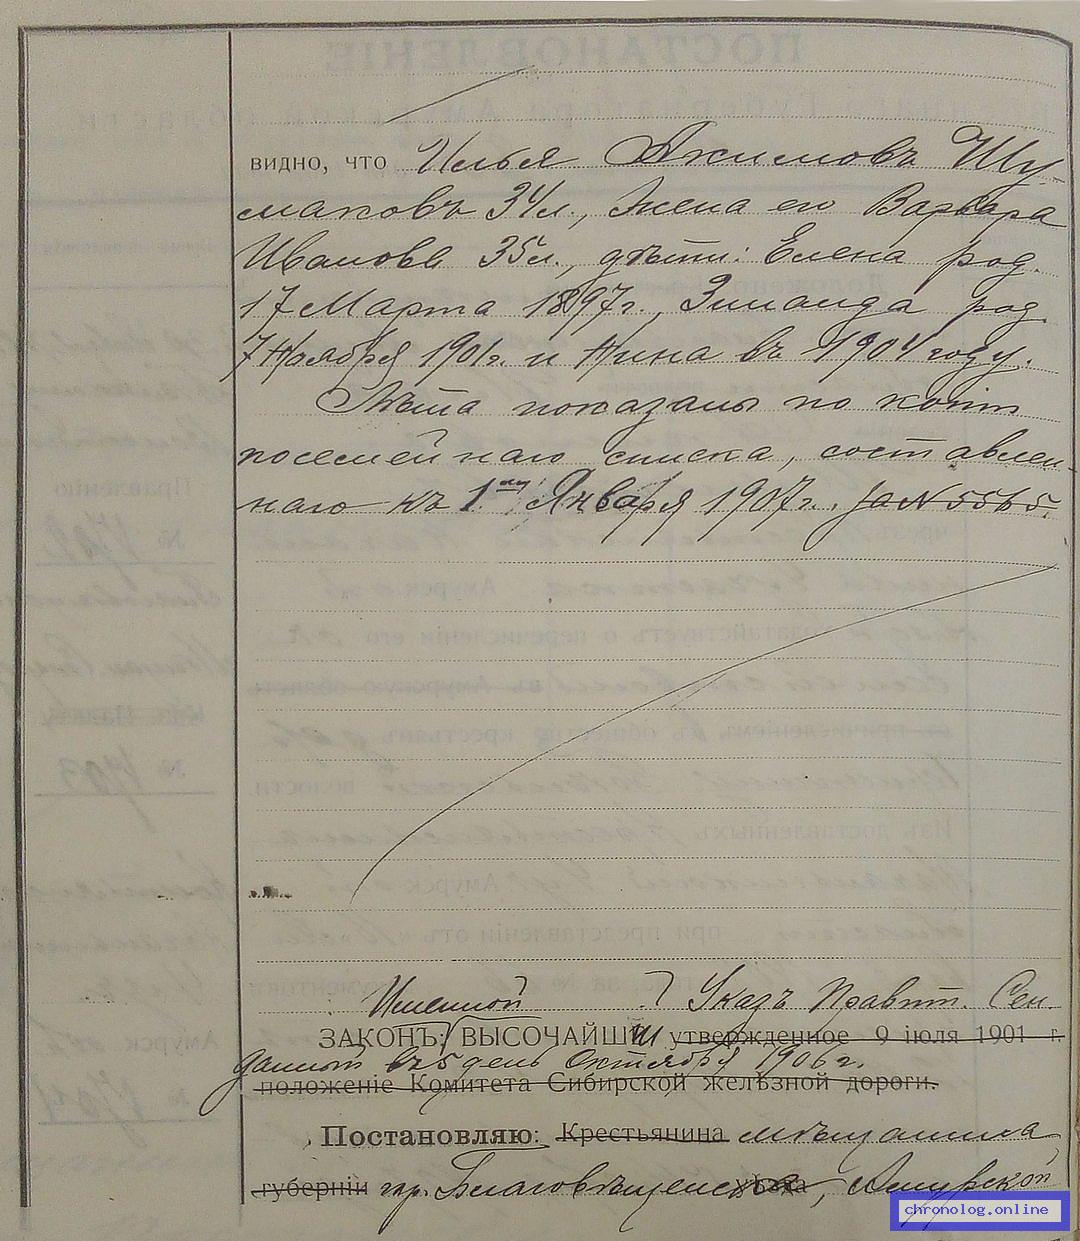 видно, что Илья Акимовъ Шу-
маковъ 34 л., жена его Варвара
Иванова 35 л., дѣти: Елена род.
17 Марта 1897 г., Зинаида род.
7 Ноября 1901 г. и Нина въ 1904 году.
Лѣта показаны по копіи
посемейнаго списка, составлен-
наго къ 1му Января 1907 г. за N 5565.
Именной Указъ Правит. Сен.
ЗАКОНЪ: ВЫСОЧАЙШІЙ утвержденное 9 іюля 1901 г.
данный въ 5 день Октября 1906 г.
положеніе Комитета Сибирской желѣзной дороги.
Постановляю: Крестьянина мѣщанина
губерніи гор. Благовѣщенска, Амурской
chronolog.online